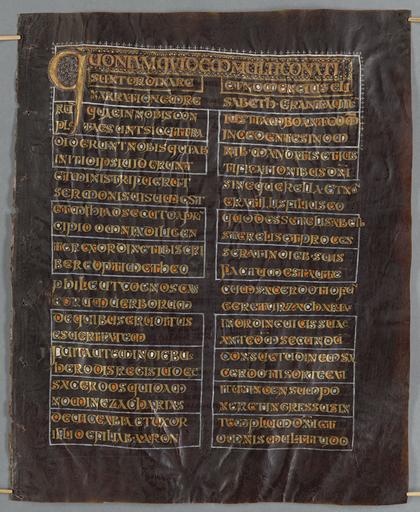 QUONIAM QUIDEM MULTI CONATI
SUNT ORDINARE
NARRATIONEM RE
RU QUAE IN NOBIS CON
PLETAE SUNT SICUT TRA
DIDERUNT NOBIS QUI AB
INITIO IPSI UIDERUNT
ET MINISTRI FUERUNT
SERMONIS UISUM EST
ET MIHI ADSECUTO A PRI
CIPIO OMNIA DILIGEN
TER EX ORDINE TIBI SCRI
BERE OPTIME THEO
PHILE UT COGNOSCAS
EORUM UERBORUM
DE QUIBUS ERUDITUS
ES UERITATEM
FUIT AUTEM IN DIEBUS
HERODIS REGIS IUDEE
SACERDOS QUIDAM
NOMINE ZACHARIAS
DE UICE ABIA ET UXOR
ILLI DE FILIAB AARON
ET NOMEN EIUS ELI
SABETH ERANT AUTE
IUSTI AMBO ANTE DM
INCEDENTES IN OM
NIB MANDATIS ET IUS
TIFICATIONIBUS DNI
SINE QUERELLA ET N
ERAT ILLIS FILIUS EO
QUOD ESSET ELISABETH
STERELIS ET PROCES
IN DIEB SUIS
FACTUM EST AUTE
CUM SACERDOTIO FU
GERETUR ZACHARIA
IN ORDINE UICIS SUAE
ANTE DM SECUNDU
CONSUETUDINEM SA
CERDOTII SORTE EXII
T UT INCENSU PO
NERET INGRESSUS IN
TEMPLUM DNI ET
OMNIS MULTITUDO